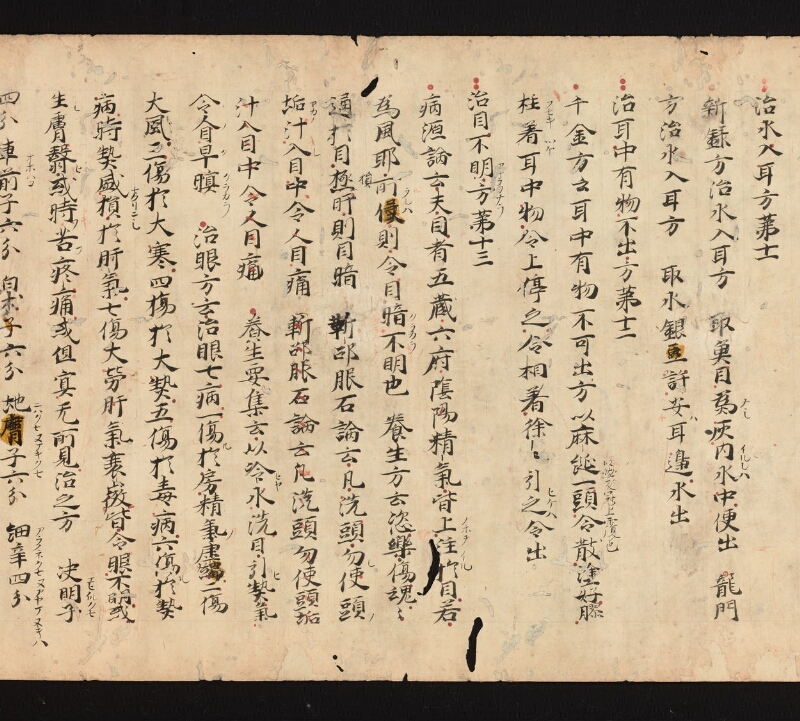 治水入耳方第十一
新録方治水入耳方 取奠目為灰内水中便出 龍門
方治水入耳方 取水銀豆許安耳邊水出
治耳中有物不出方第十二
千金方云耳中有物不可出方以麻繩一頭令散塗好膠
柱著耳中物令上停之令相著徐〻引之令出
治目不明方第十三
病源論云夫目者五蔵六府陰陽精氣皆上注於目若
為風耶所侵則令目暗不明也 養生方云恣樂傷魂〻
通於目極肝則目暗 斬邵服石論云凡洗頭勿使頭
垢汁入目中令人目痛 斬邵服石論云凡洗頭勿使頭垢
汁入目中令人目痛 養生要集云以冷水洗目引熱氣
令人目早瞑 治眼方云治眼七病一傷於房精氣虚二傷
大風三傷於大寒四傷於大熱五傷於毒病六傷於熱
病時熱盛損於肝氣七傷大勞肝氣衰皆令眼不明或
生膚翳或時苦疼痛或但宴无所見治之方 决明子
四分車前子六分 子六分 地膚子六分 細辛四分